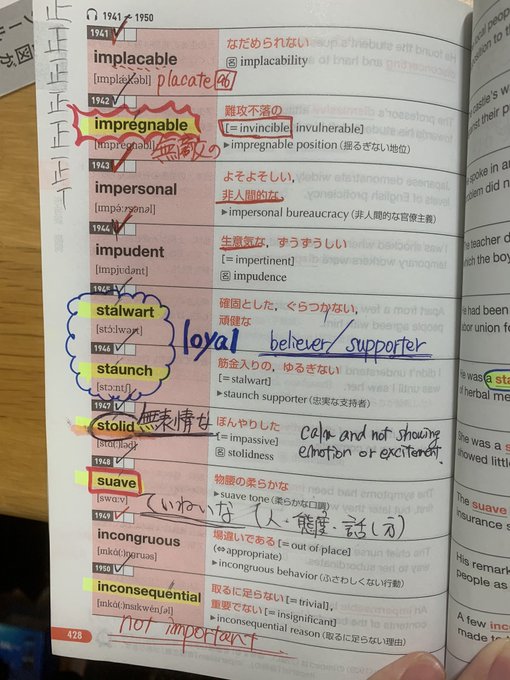 1941 ~ 1950
1941
implacable
[ɪmplǽkəbl]
placate 96
なだめられない
名 implacability
1942
impregnable
[ɪmprégnəbl]
無敵の
難攻不落の
[= invincible, invulnerable]
▶impregnable position (揺るぎない地位)
1943
impersonal
[ɪmpə́ːrsənəl]
よそよそしい,
非人間的な
▶impersonal bureaucracy (非人間的な官僚主義)
1944
impudent
[ímpjudənt]
生意気な, ずうずうしい
[= impertinent]
名 impudence
1945
stalwart
[stɔ́ːlwərt]
確固とした, ぐらつかない,
頑健な
loyal believer/supporter
1946
staunch
[stɔːntʃ]
筋金入りの, ゆるぎない
[= stalwart]
▶staunch supporter (忠実な支持者)
1947
stolid
無表情な
ぼんやりした
[= impassive]
名 stolidness
calm and not showing
emotion or excitement.
1948
suave
[swɑːv]
物腰の柔らかな
▶suave tone (柔らかな口調)
ていねいな (人・態度・話し方)
1949
incongruous
[ɪnkɑ́(ː)ŋgruəs]
場違いである [= out of place]
(⇔ appropriate)
▶incongruous behavior (ふさわしくない行動)
1950
inconsequential
[ɪnkɑ̀(ː)nsɪkwénʃəl]
取るに足らない [= trivial],
重要でない [= insignificant]
▶inconsequential reason (取るに足らない理由)
not important
428
正
正
正
正
He was a sta
of herbal me
She was a s
showed little
The suave
insurance s
His remark
people as
A few inco
made to